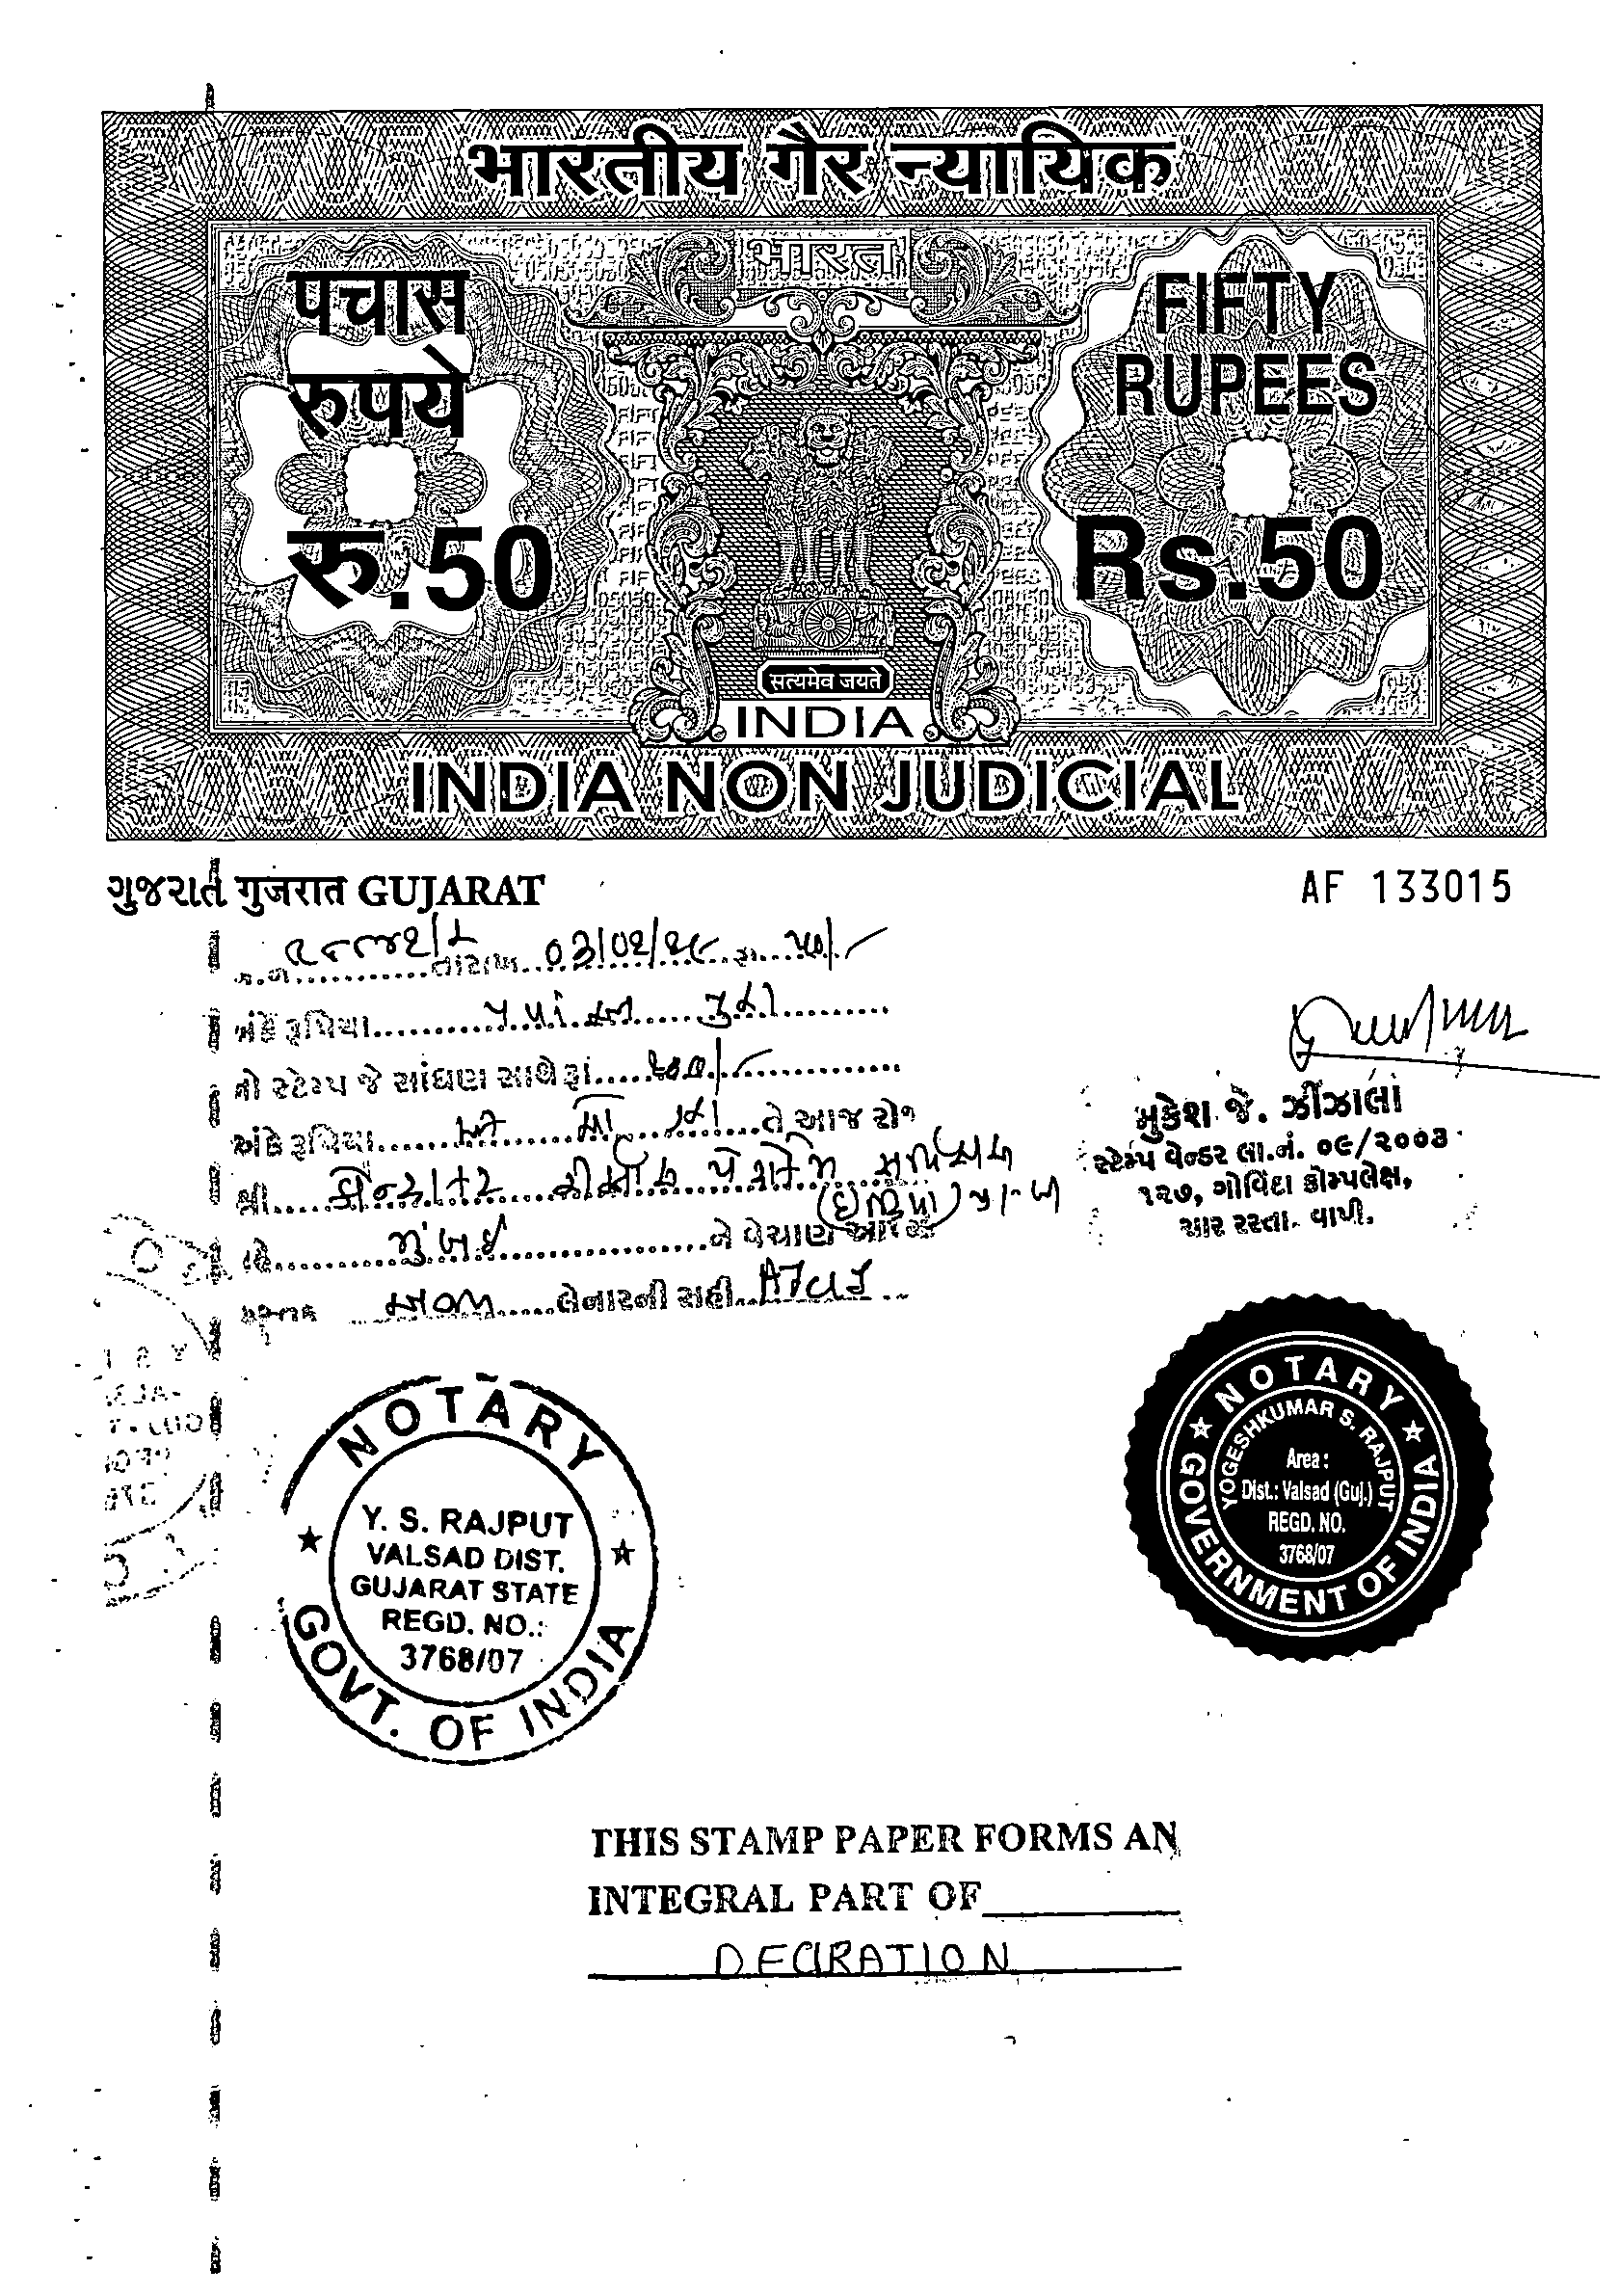 भारतीय गैर न्यायिक
भारत
पचास
रुपये
रु.50
FIFTY
RUPEES
Rs.50
सत्यमेव जयते
INDIA
INDIA NON JUDICIAL
ગુજરાત गुजरात GUJARAT
AF 133015
તારીખ 03/0૨/૨૬ રૂા. ૫૦/-
અંકે રૂપિયા
નો સ્ટેમ્પ જે સાંધણ સાથે રૂા. ૨૦૦/-
અંકે રૂપિયા તે આજ રોજ
શ્રી
(ઇન્ડિયા)
રહે. મુંબઈ ને વેચાણ આપ્યો
લેનારની સહી
મુકેશ જે. ઝીંઝાલા
સ્ટેમ્પ વેન્ડર લા.નં. ૦૯/૨૦૦૩
૧૨૭, ગોવિંદા કોમ્પલેક્ષ,
ચાર રસ્તા. વાપી.
NOTARY
Y. S. RAJPUT
VALSAD DIST.
GUJARAT STATE
REGD. NO.:
3768/07
GOVT. OF INDIA
NOTARY
YOGESHKUMAR S. RAJPUT
Area :
Dist.: Valsad (Guj.)
REGD. NO.
3768/07
GOVERNMENT OF INDIA
THIS STAMP PAPER FORMS AN
INTEGRAL PART OF
DECLRATION